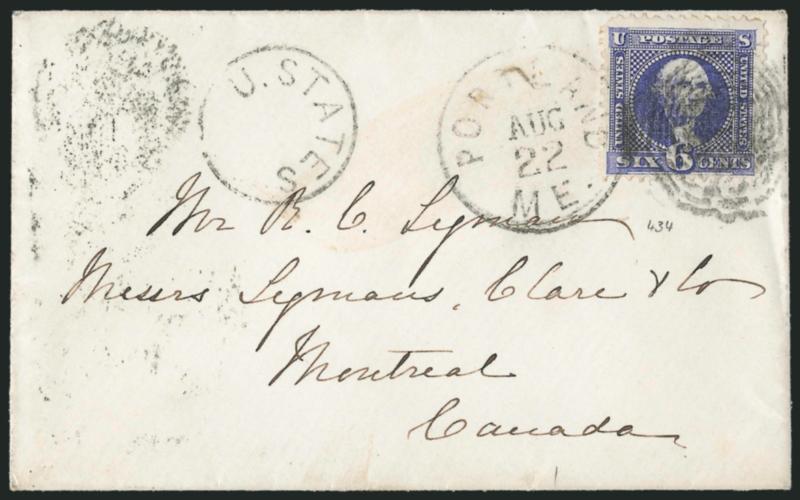 U. STATES
PORTLAND
AUG
22
ME.
U POSTAGE S
UNITED STATES
UNITED STATES
SIX 6 CENTS
434
Mr R. C. Lyman
Messrs Lymans, Clare & Co
Montreal
Canada